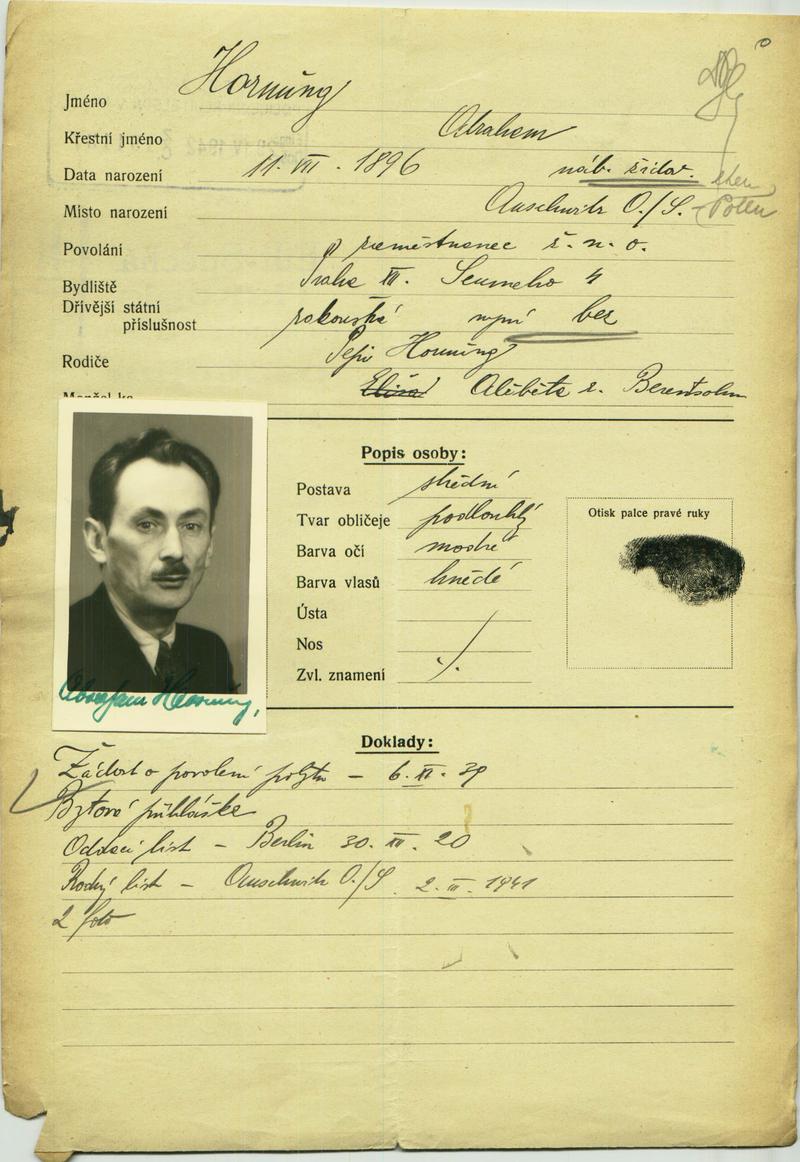 Jméno Hornung
Křestní jméno Abrahem
Data narození 11. VII. 1896 náb. židov. ehem
Místo narození Auschwitz O./S. - Polen
Povolání zaměstnanec ž. n. o.
Bydliště Praha III. Seumeho 4
Dřívější státní
příslušnost rakouská nyní bez
Rodiče Pepi Hornung
Alžběta r.
Popis osoby:
Postava střední
Tvar obličeje podlouhlý
Barva očí modré
Barva vlasů hnědé
Ústa
Nos
Zvl. znamení ·/.
Otisk palce pravé ruky
Abraham Hornung,
Doklady:
Žádost o povolení pobytu - 6. XI. 39
Bytová přihláška
Oddací list - Berlin 30. XII. 20
Rodný list - Auschwitz O./S. 2. III. 1941
2 foto